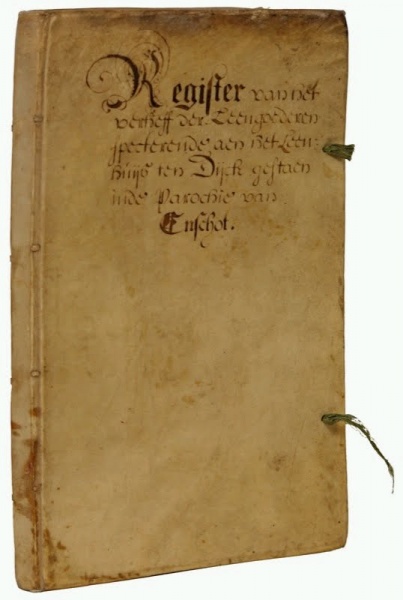 Register van het
verheff der Leengoederen
specterende aen het Leen:
huijs ten Dijck gestaen
inde Parochie van
Enschot.